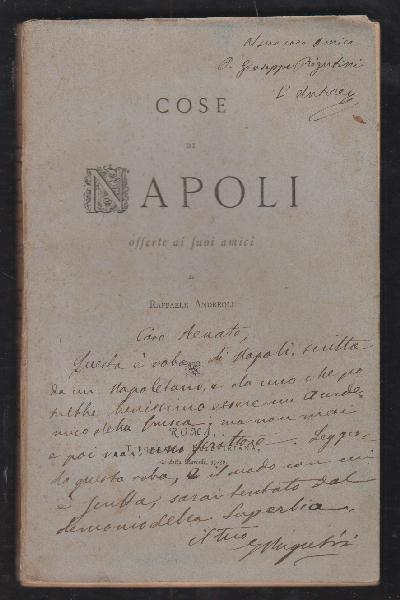 Al suo caro Amico
P. Giuseppe Rigutini
L'Autore
COSE
DI
NAPOLI
offerte ai suoi amici
DA
RAFFAELE ANDREOLI
Caro Renato,
Questa è roba di Napoli, scritta
da un Napoletano, e da uno che po
trebbe benissimo essere un Accade-
mico della Crusca; ma non mai
ROMA
e poi mai uno scrittore. Leggen-
do questa roba, e il modo con cui
è scritta, sarai tentato dal
demonio della Superbia.
il tuo
GRigutini